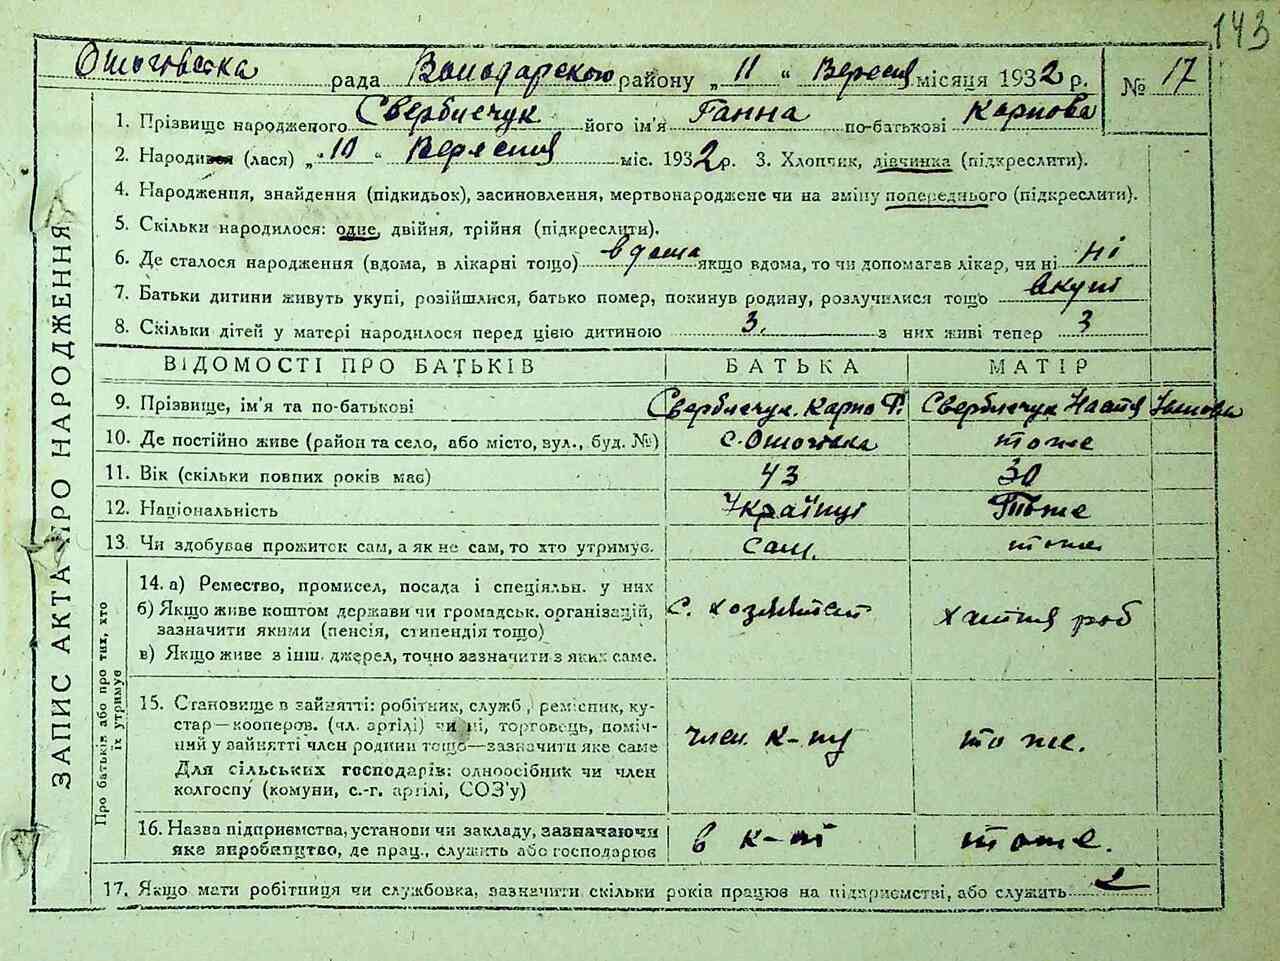 143
рада Володарского району „ 11 “ Вересня місяця 1932 р. № 17
1. Прізвище народженого Свербиєчук його ім'я Ганна по-батькові Карпова
2. Народився (лася) „ 10 “ Вересня міс. 1932 р. 3. Хлопчик, дівчинка (підкреслити).
4. Народження, знайдення (підкидьок), засиновлення, мертвонароджене чи на зміну попереднього (підкреслити).
5. Скільки народилося: одне, двійня, трійня (підкреслити).
6. Де сталося народження (вдома, в лікарні тощо) вдома якщо вдома, то чи допомагав лікар, чи ні ні
7. Батьки дитини живуть укупі, розійшлися, батько помер, покинув родину, розлучилися тощо вкупі
8. Скільки дітей у матері народилося перед цією дитиною 3. з них живі тепер 3
ВІДОМОСТІ ПРО БАТЬКІВ БАТЬКА МАТІР
9. Прізвище, ім'я та по-батькові Свербиєчук Карпо Ф. Свербиєчук Настя
10. Де постійно живе (район та село, або місто, вул., буд. №) тоже
11. Вік (скільки повних років має) 43 30
12. Національність Українці Тоже
13. Чи здобував прожиток сам, а як не сам, то хто утримує. сам. тоже
14. а) Ремество, промисел, посада і спеціяльн. у них
б) Якщо живе коштом держави чи громадськ. організацій, с. хозяйст хатня роб
зазначити якими (пенсія, стипендія тощо)
в) Якщо живе з інш. джерел, точно зазначити з яких саме.
15. Становище в зайнятті: робітник, служб., ремісник, ку-
стар—кооперов. (чл. артілі) чи ні, торговець, поміч-
ний у зайнятті член родини тощо—зазначити яке саме член к-пу то же.
Для сільських господарів: одноосібник чи член
колгоспу (комуни, с.-г. артілі, СОЗ'у)
16. Назва підприємства, установи чи закладу, зазначаючи в к-пі тоже.
яке виробництво, де прац., служить або господарює
17. Якщо мати робітниця чи службовка, зазначити скільки років працює на підприємстві, або служить
ЗАПИС АКТА ПРО НАРОДЖЕННЯ
Про батьків або про тих, хто
їх утримує